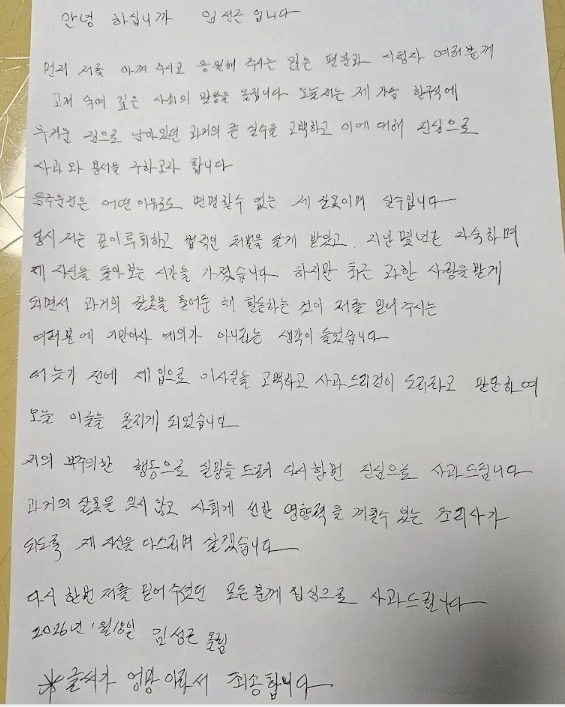 안녕 하십니까 임성근 입니다
먼저 저를 아껴 주시고 응원해 주시는 많은 팬분과 시청자 여러분께
고개 숙여 깊은 사죄의 말씀을 올립니다 오늘 저는 제 가슴 한구석에
무거운 짐으로 남아있던 과거의 큰 실수를 고백하고 이에 대해 진심으로
사과와 용서를 구하고자 합니다
음주운전은 어떤 이유로도 변명할수 없는 제 잘못이며 실수입니다
당시 저는 깊이 후회하고 법적인 처벌을 달게 받았고, 지난 몇년간 자숙하며
제 자신을 돌아보는 시간을 가졌습니다 하지만 최근 과한 사랑을 받게
되면서 과거의 잘못을 묻어둔 채 활동하는 것이 저를 믿어 주시는
여러분에 기만이자 예의가 아니라는 생각이 들었습니다
더 늦기 전에 제 입으로 이사실을 고백하고 사과드리것이 도리라고 판단하여
오늘 이글을 올리게 되었습니다
저의 부주의한 행동으로 실망을 드려 다시한번 진심으로 사과드립니다
과거의 잘못을 잊지 않고 사회에 선한 영향력을 끼칠수 있는 조리사가
되도록 제 자신을 다스리며 살겠습니다
다시 한번 저를 믿어 주셨던 모든 분께 진심으로 사과드립니다
2026년 1월 18일 임성근 올림
※글씨가 엉망이라서 죄송합니다